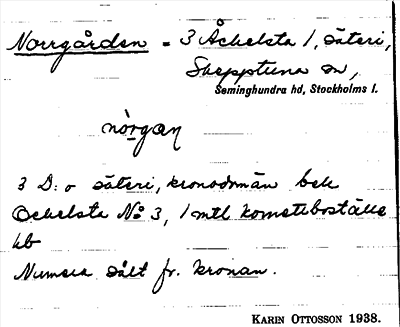 Norrgården = 3 Åckelsta 1, säteri,
Skepptuna sn,
Seminghundra hd, Stockholms l.
nòrgan
3 D:o säteri, kronodomän bek
Ockelsta No 3, 1 mtl kometsboställe
kb
Numera sålt fr. kronan.
KARIN OTTOSSON 1938.